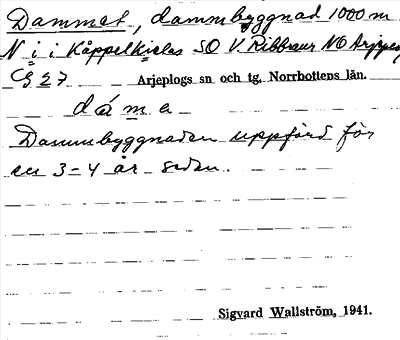 Dammet, dammbyggnad 1000 m
N i i Kåppelkielas SO V. Ribbraur NO Arjeplog
Cg 27 Arjeplogs sn och tg. Norrbottens län.
dámen
Dammbyggnaden uppförd för
en 3-4 år sedan.
Sigvard Wallström, 1941.